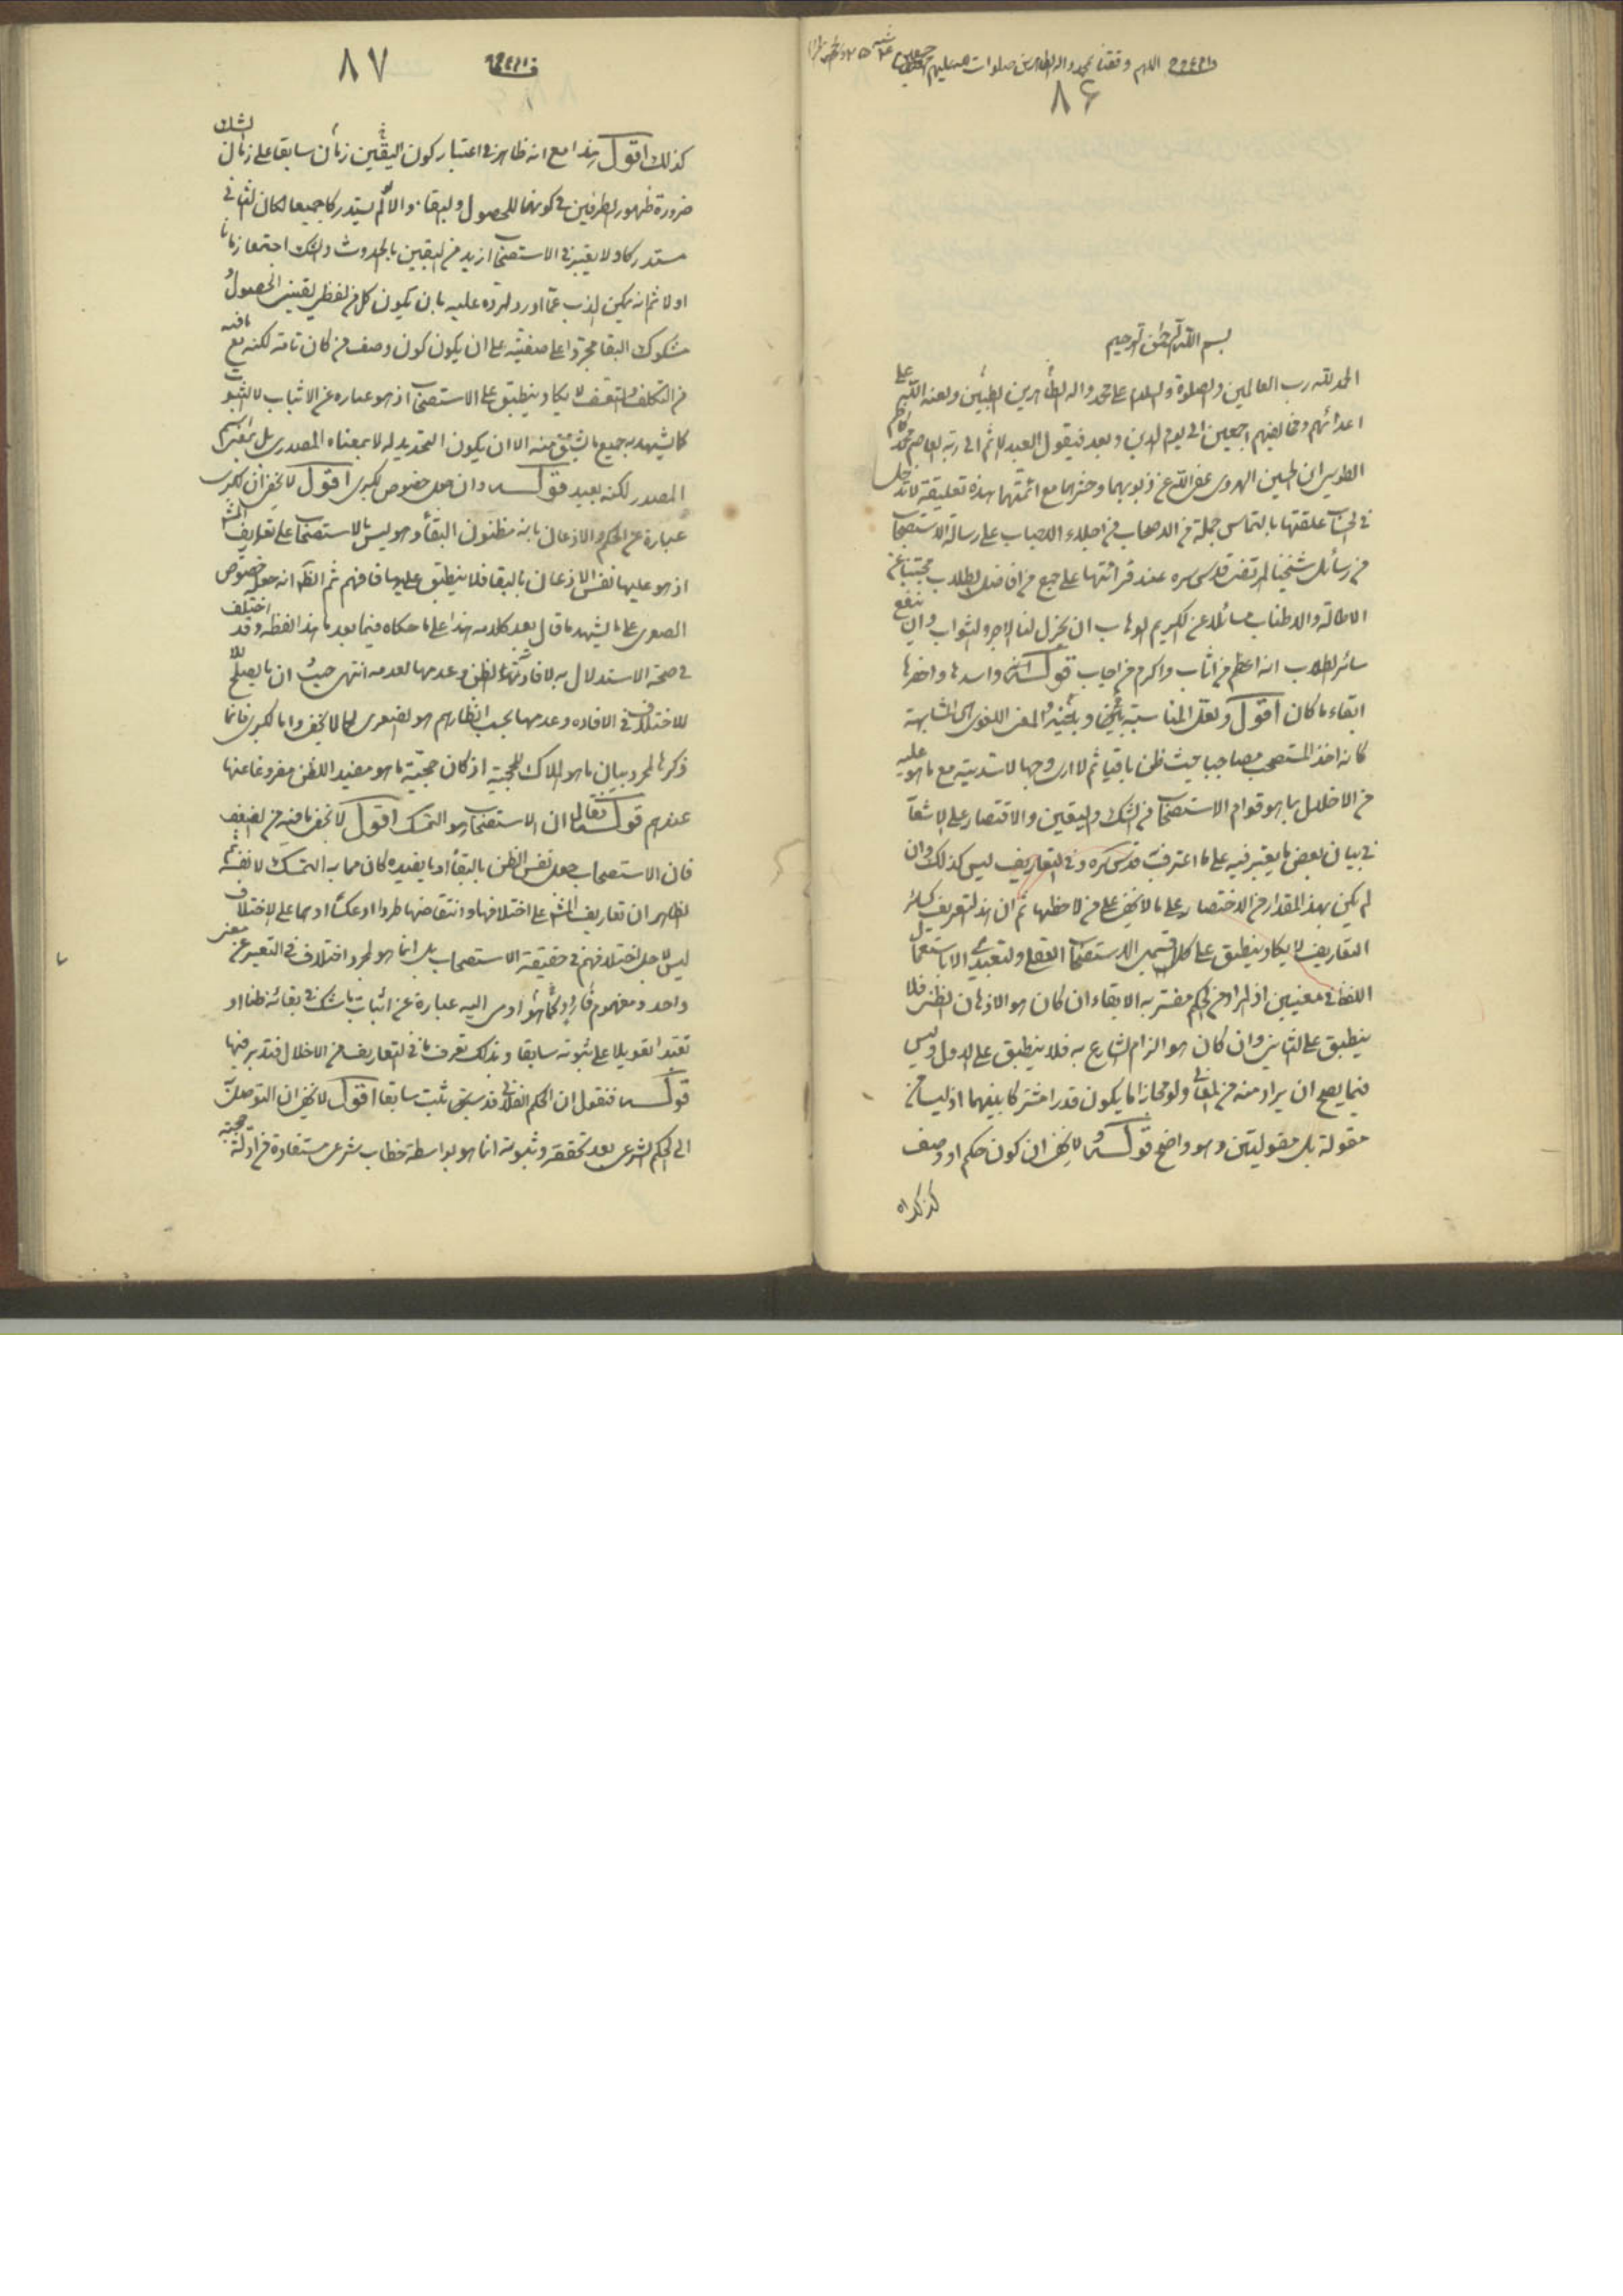 اللهم وفقنا بمحمد واله الطاهرين صلوات الله عليهم اجمعين
٨۶
بسم الله الرحمن الرحيم
الحمد لله رب العالمين والصلوة والسلام على محمد واله الطاهرين الطيبين ولعنة الله على
اعدائهم ومخالفيهم اجمعين الى يوم الدين وبعد فيقول العبد الاثم الى ربه العاصم محمد كاظم
الطوسي ابن الحسين الهروي عفى الله عن ذنوبهما وحشرهما مع ائمتهما هذه تعليقة لا تدخل
في الحساب علقتها بالتماس جملة من الاصحاب من اجلاء الاحباب على رسالة الاستصحاب
من رسائل شيخنا المرتضى قدس سره عند قرائتها على جمع من افاضل الطلاب مجتنبا عن
الاطالة والاطناب سائلا عن الكريم الوهاب ان يجزل لنا الاجر والثواب وان ينفع
سائر الطلاب انه اعظم من اثاب واكرم من اجاب قوله واسدها واخصرها
ابقاء ما كان اقول ولعل المناسبة بينها وبينه والمعنى اللغوي هي المشابهة
كانه اخذ المستصحب مصاحبا حيث ظن باقيا ثم لا ارى وجها لاسديته مع ما هو عليه
من الاخلال بما هو قوام الاستصحاب من الشك واليقين والاقتصار على الاشعار
في بيان بعض ما يعتبر فيه على ما اعترف قدس سره وفي التعاريف ليس كذلك وان
لم يكن بهذا المقدار من الاختصار على ما لا يخفى على من لاحظها ثم ان هذا التعريف كسائر
التعاريف لا يكاد ينطبق على كلا قسمي الاستصحاب العقلي والتعبدي الا باستعمال
اللفظ في معنيين اذ المراد من الحكم مفسر به الابقاء ان كان هو الاذعان الظني فلا
ينطبق على الثاني وان كان هو الزام الشارع به فلا ينطبق على الاول وليس
فيما يصح ان يراد منه من المعاني ولو مجازا ما يكون قدرا مشتركا بينهما اذ ليسا من
مقولة بل مقولتين وهو واضح قوله ولا يخفى ان كون حكم او وصف
كذلك اه
٨٧
كذلك اقول هذا مع انه ظاهر في اعتبار كون اليقين في زمان سابقا على زمان الشك
ضرورة ظهور الطرفين في كونهما للحصول والبقاء والا لو لم يستدركا جميعا لكان الثاني
مستدركا ولا يعتبر في الاستصحاب ازيد من اليقين بالحدوث والشك اجتمعا زمانا
او لا ثم انه يمكن الذب عما اورد المورد عليه بان يكون كل من لفظي يقيني الحصول
مشكوك البقا مجرورا على صفتيه على ان يكون كون وصف من كان تامة لكنه مع ما فيه
من التكلف والتعسف لا يكاد ينطبق على الاستصحاب اذ هو عباره عن الاثبات لا الثبوت
كما يشهد به جميع ما يشتق منه الا ان يكون التحديد له لا بمعناه المصدري بل بمعنى اسم
المصدر لكنه بعيد قوله وان جعل خصوص الكبرى اقول لا يخفى ان الكبرى
عبارة عن الحكم والاذعان بانه مظنون البقاء وهو ليس بالاستصحاب على تعاريف المشهور
اذ هو عليها نفس الاذعان بالبقاء فلا ينطبق عليها فافهم ثم الظاهر انه جعله خصوص
الصغرى على ما يشهد ما قال بعد كلامه هذا على ما حكاه فيما بعد ما هذا لفظه وقد اختلف
في صحة الاستدلال به لافادته الظن وعدمها لعدمه انتهى حيث ان ما يصلح
للاختلاف في الافاده وعدمها بحسب انظارهم هو الصغرى كما لا يخفى واما الكبرى فانما
ذكرها لمجرد بيان ما هو الملاك للحجية اذ كان حجية ما هو مفيد الظن مفروغا عنها
عندهم قوله ان الاستصحاب هو التمسك اقول لا يخفى ما فيه من الضعف
فان الاستصحاب جعل نفس الظن بالبقاء او ما يفيده كان مما به التمسك لا نفسه ثم
الظاهر ان تعاريف المشهور على اختلافها وانتقاضها طردا او عكسا او هما على الاختلاف
ليس لاجل اختلافهم في حقيقة الاستصحاب بل انما هو لمجرد اختلاف في التعبير عن معنى
واحد ومفهوم فارد وكلما هو اومى اليه عبارة عن اثبات ما شك في بقائه ظنا او
تعبدا تعويلا على ثبوته سابقا وبذلك تعرف ما في التعاريف من الاخلال فتدبر فيها
قوله فنقول ان الحكم الفلاني قد سبق ثبت سابقا اقول لا يخفى ان التوصل
الى الحكم الشرعي بعد تحققه وثبوته انما هو بواسطة خطاب شرعي مستفادة من ادلة حجية